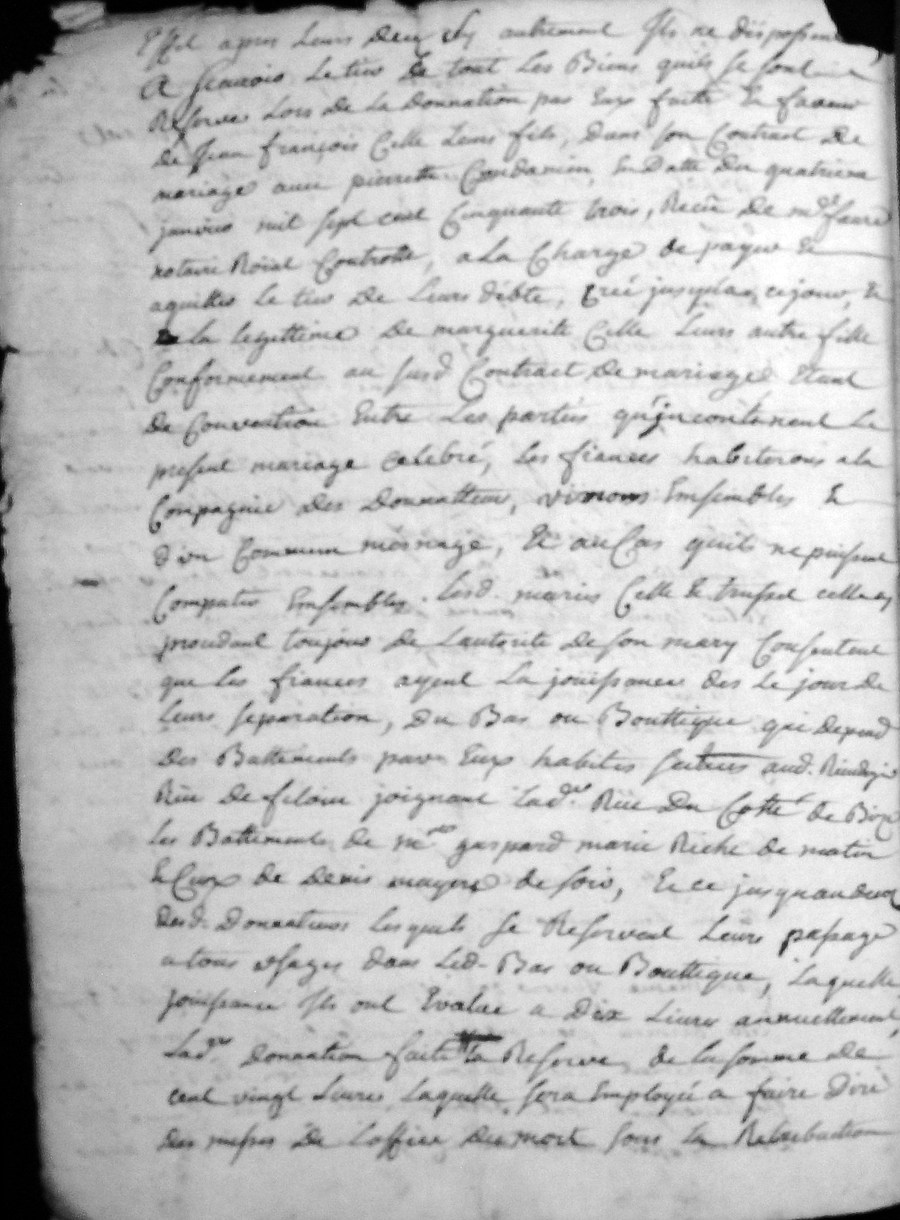 Effet apres Leurs deux sy autrement Ils ne disposent
A scavoir Le tiers de tout Les Biens quils se sont
Reservé Lors de La Donnation par Eux faitte En faveur
de Jean françois Celle Leurs fils, dans son Contract de
mariage avec pierrette Condamin, En Datte du quatrieme
janvier mil sept cent Cinquante trois, Recû de me faure
notaire Roïal Controllé, a La Charge de payer Et
aquitter Le tiers de Leurs débte, Créé jusqu'a ce jour, Et
La legittime de marguerite Celle Leurs autre fille
Conformement au susd Contract de mariage Etant
de Convention Entre Les parties qu'incontinent Le
present mariage celebré, Les fiancés habiterons a la
Compagnie des Donnatteur, vivrons Ensembles Et
d'un Commun mésnage, Et au Cas quils ne puissent
Compatir Ensembles. Lesd. mariés Celle Et trussel celle cy
procedant toujour de Lautorité de son mary Consentent
que Les fiancés ayent La jouissance des Le jour de
Leurs separation, du Bas ou Bouttique qui depend
des Battements par Eux habités scitués aud.
Rüe de joignant Lad.te Rüe du Cotté de Bize
Les Battements de me gaspard marie Riche de matin
Et Ceux de denis mayere de soir, Et ce jusquau deces
desd. Donnatteurs Lesquels se Reservent Leurs passage
a tous usages dans Led. Bas ou Bouttique, Laquelle
jouissance Ils ont Evalué a Dix Livres annuellement,
Lad.te Donnation faitte a La Reserve de La somme de
cent vingt Livres Laquelle sera Employé a faire Dire
des messes de Loffice des mort sous La Retribution